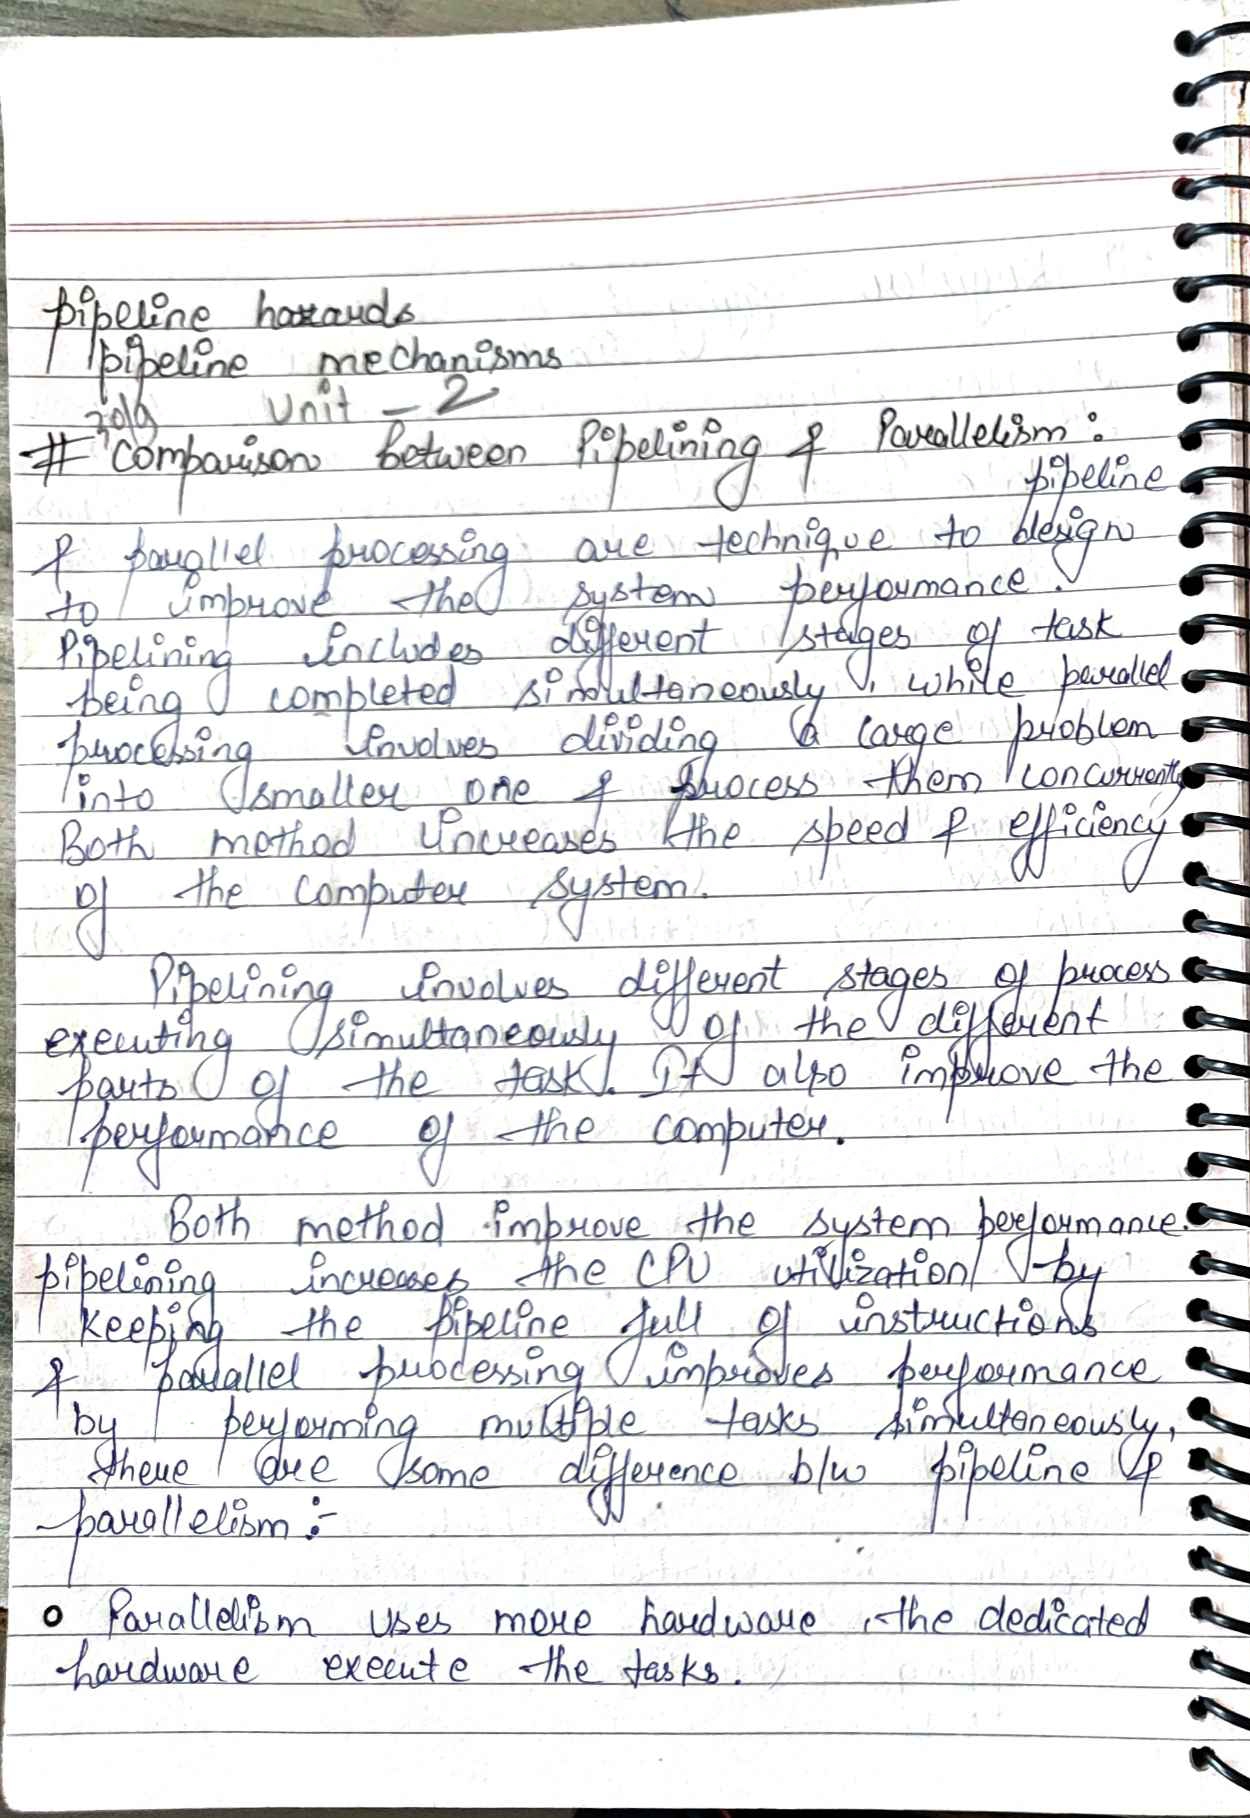 pipeline hazards
pipeline mechanisms
Unit - 2
# Comparison between Pipelining & Parallelism :
pipeline
& parallel processing are technique to design
to improve the system performance.
Pipelining includes different stages of task
being completed simultaneously, while parallel
processing involves dividing a large problem
into smaller one & process them concurrently
Both method increases the speed & efficiency
of the computer system.
Pipelining involves different stages of process
executing simultaneously of the different
parts of the task. It also improve the
performance of the computer.
Both method improve the system performance.
pipelining increases the CPU utilization by
keeping the pipeline full of instructions
& parallel processing improves performance
by performing multiple tasks simultaneously,
there are some difference b/w pipeline &
parallelism :-
o Parallelism uses more hardware, the dedicated
hardware execute the tasks.